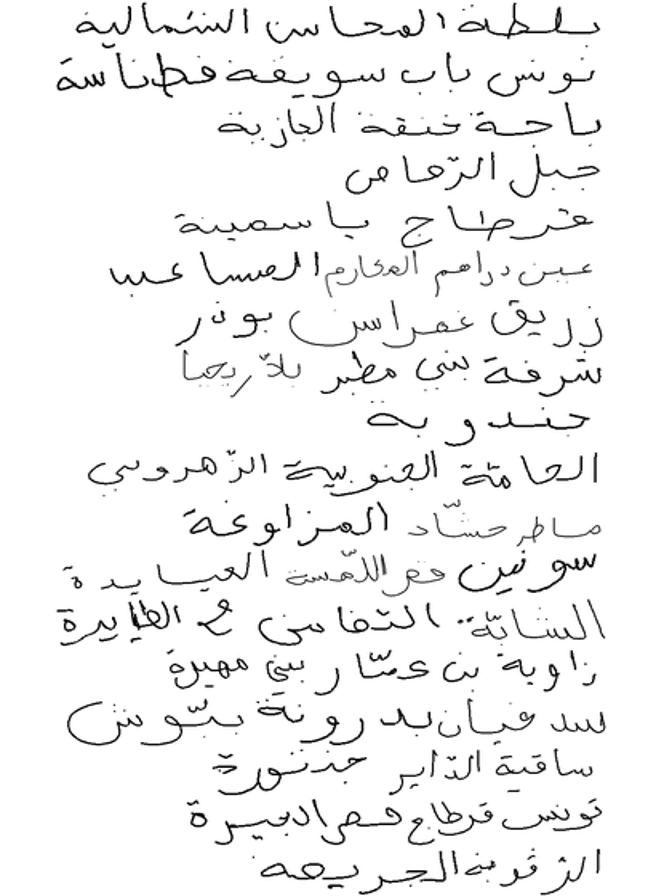 بلطة المحاسن الشمالية
تونس باب سويقة فطناسة
باجة خنقة الجازية
جبل الرصاص
قرطاج ياسمينة
عين دراهم المكارم المساعيد
زريق غمراسن بوذر
شرفة بني مطير بلاريجيا
جندوبة
الحامة الجنوبية الزهروني
ماطر حشاد المزاوغة
سونين قصر اللمسة العيايدة
الشابة التضامن ج الطايرة
زاوية بن عمار بني مهيرة
سد فيان بدرونة بتوش
ساقية الداير جذنورة
تونس قرطاج قصر البحيرة
الزقوبة الجريصة